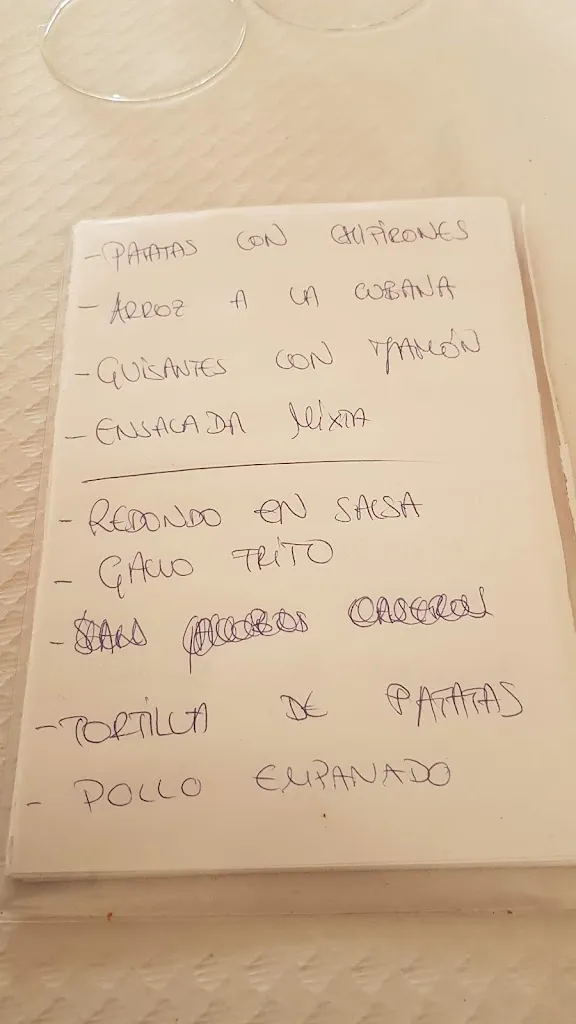 - PATATAS CON CHIPIRONES
- ARROZ A LA CUBANA
- GUISANTES CON JAMÓN
- ENSALADA MIXTA
- REDONDO EN SALSA
- GALLO FRITO
- TORTILLA DE PATATAS
- POLLO EMPANADO